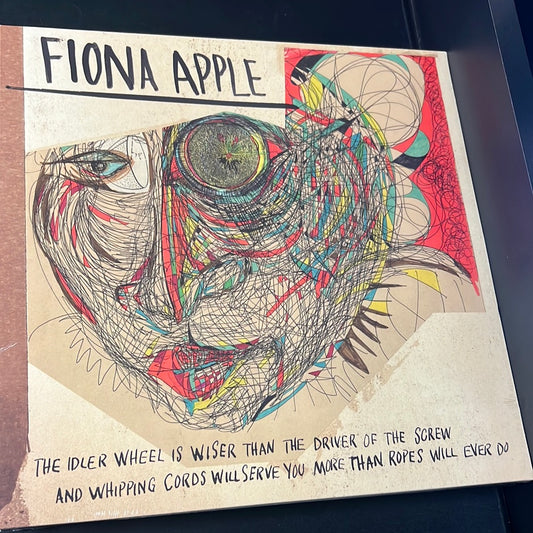 FIONA APPLE
THE IDLER WHEEL IS WISER THAN THE DRIVER OF THE SCREW
AND WHIPPING CORDS WILL SERVE YOU MORE THAN ROPES WILL EVER DO